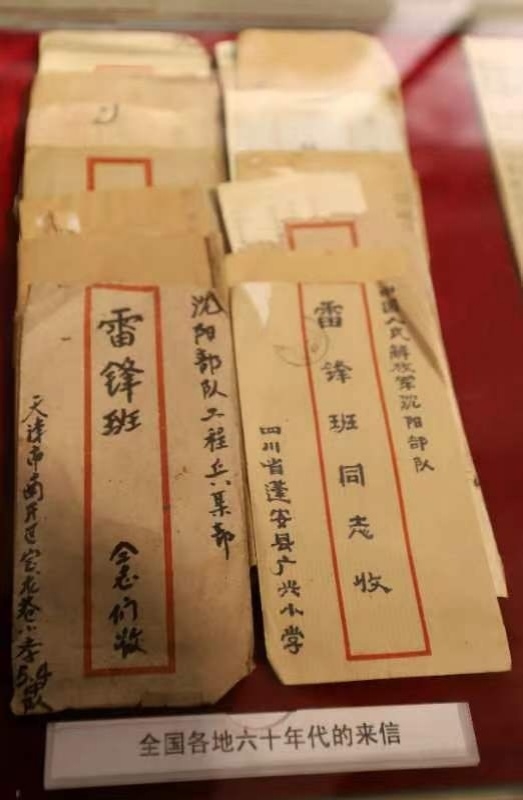 沈阳部队工程兵某部
雷锋班
仝志们收
天津市南开区宝龙巷小学5.4队
中国人民解放军沈阳部队
雷锋班同志收
四川省蓬安县广兴小学
全国各地六十年代的来信